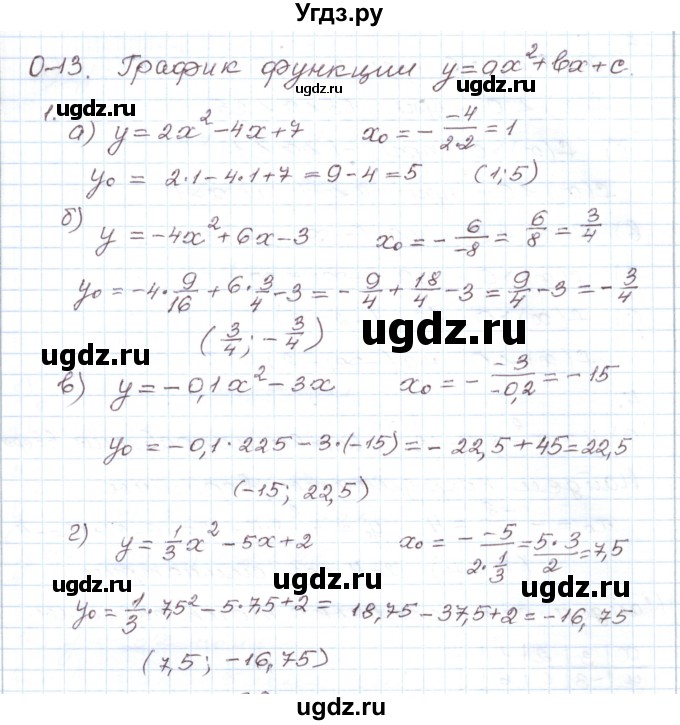 Угдз.ру
О-13. График функции y=ax²+bx+c.
1.
а) y=2x²-4x+7 x₀=-\frac{-4}{2·2}=1
y₀ = 2·1-4·1+7=9-4=5 (1;5)
б) y=-4x²+6x-3 x₀=-\frac{6}{-8}=\frac{6}{8}=\frac{3}{4}
y₀=-4·\frac{9}{16}+6·\frac{3}{4}-3=-\frac{9}{4}+\frac{18}{4}-3=\frac{9}{4}-3=-\frac{3}{4}
(\frac{3}{4}; -\frac{3}{4})
в) y=-0,1x²-3x x₀=-\frac{-3}{-0,2}=-15
y₀=-0,1·225-3·(-15)=-22,5+45=22,5
(-15; 22,5)
г) y=\frac{1}{3}x²-5x+2 x₀=-\frac{-5}{2·\frac{1}{3}}=\frac{5·3}{2}=7,5
y₀=\frac{1}{3}·7,5²-5·7,5+2= 18,75-37,5+2=-16,75
(7,5; -16,75)
ugdz.ru
ugdz.ru
ugdz.ru
ugdz.ru
ugdz.ru
ugdz.ru
ugdz.ru
ugdz.ru
ugdz.ru
ugdz.ru
ugdz.ru
ugdz.ru
ugdz.ru